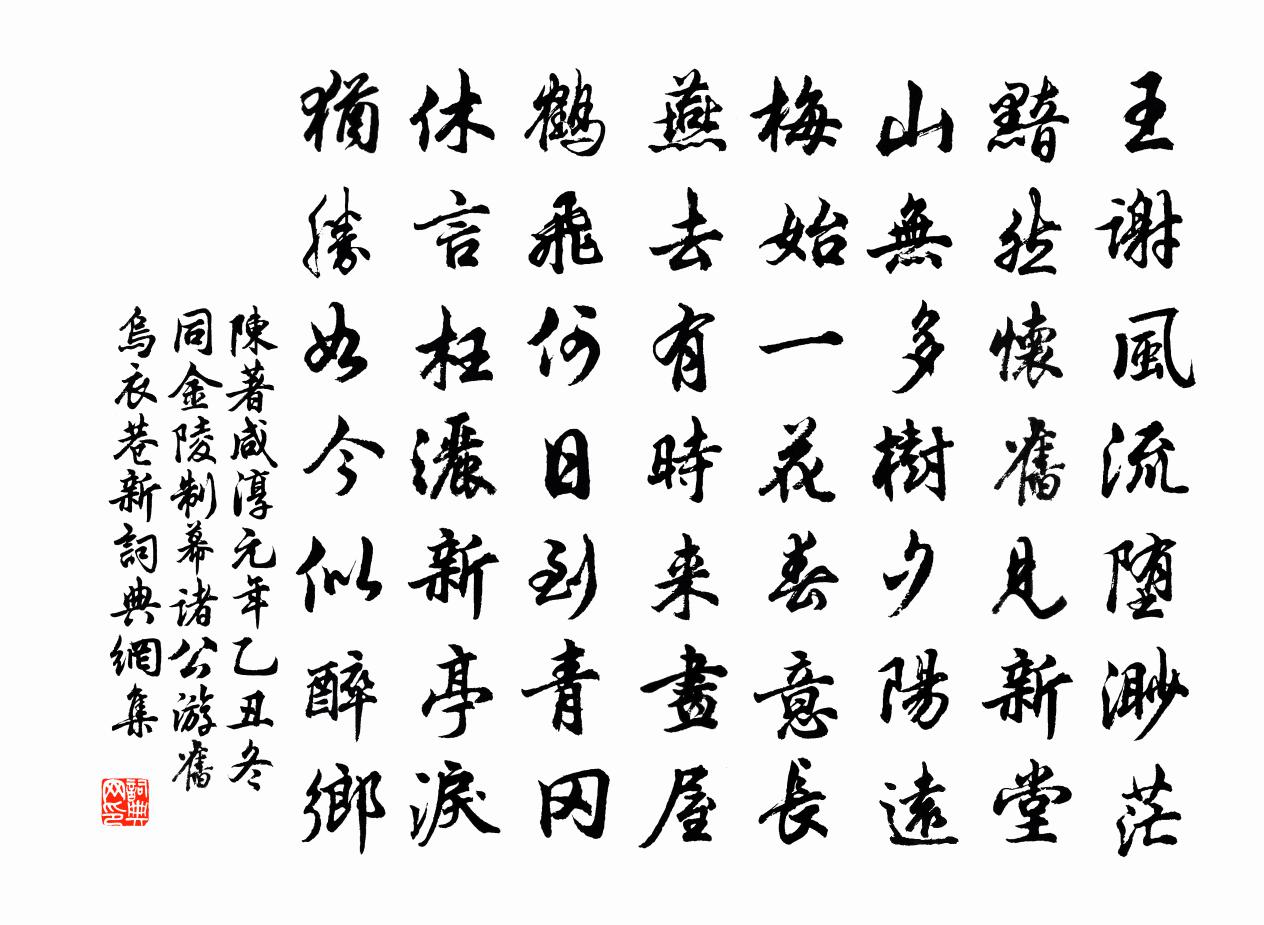 王謝風流堕渺茫
黯然懷舊見新堂
山無多樹夕陽遠
梅始一花春意長
燕去有時来畫屋
鶴飛何日到青冈
休言枉灑新亭淚
猶勝如今似醉鄉
陳著咸淳元年乙丑冬
同金陵制幕诸公游舊
烏衣巷新詞典網集
詞典
网印